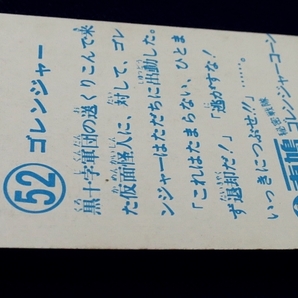 52 ゴレンジャー
黒十字軍団の送くりこんで来
た仮面怪人に、対して、ゴレ
ンジャーはただちに出動した。
「これはたまらない、ひとま
ず退却だ！」「逃がすな！
いっきにつぶせ!!」……。
秘密戦隊
ゴレンジャーコーン